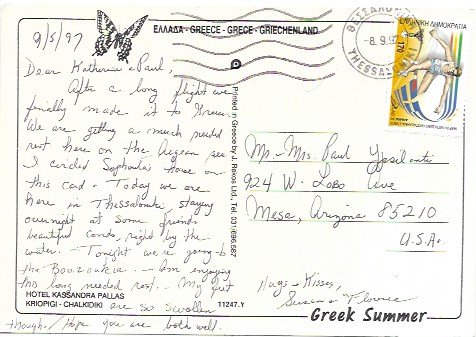 9/5/97
ΕΛΛΑΔΑ - GREECE - GRECE - GRIECHENLAND
Dear Katherine & Paul,
After a long flight we
finally made it to Greece.
We are getting a much needed
rest here on the Aegean sea
I circled Sophoula's house on
this card - Today we are
here in Thessaloniki staying
overnight at some friends
beautiful condo, right by the
water. Tonight we are going to
the Bouzoukia - I am enjoying
this long needed rest. My feet
are so swollen
though. Hope you are both well.
HOTEL KASSANDRA PALLAS
KRIOPIGI - CHALKIDIKI
11247.Y
Printed in Greece by J. Rekos Ltd., Tel. 331/696.587
THESSALONIKI
-8.9.97
ΕΛΛΗΝΙΚΗ ΔΗΜΟΚΡΑΤΙΑ
170
Mr. - Mrs. Paul Ypsilanti
924 W. Lobo Ave
Mesa, Arizona 85210
U.S.A.
Hugs - Kisses,
Greek Summer